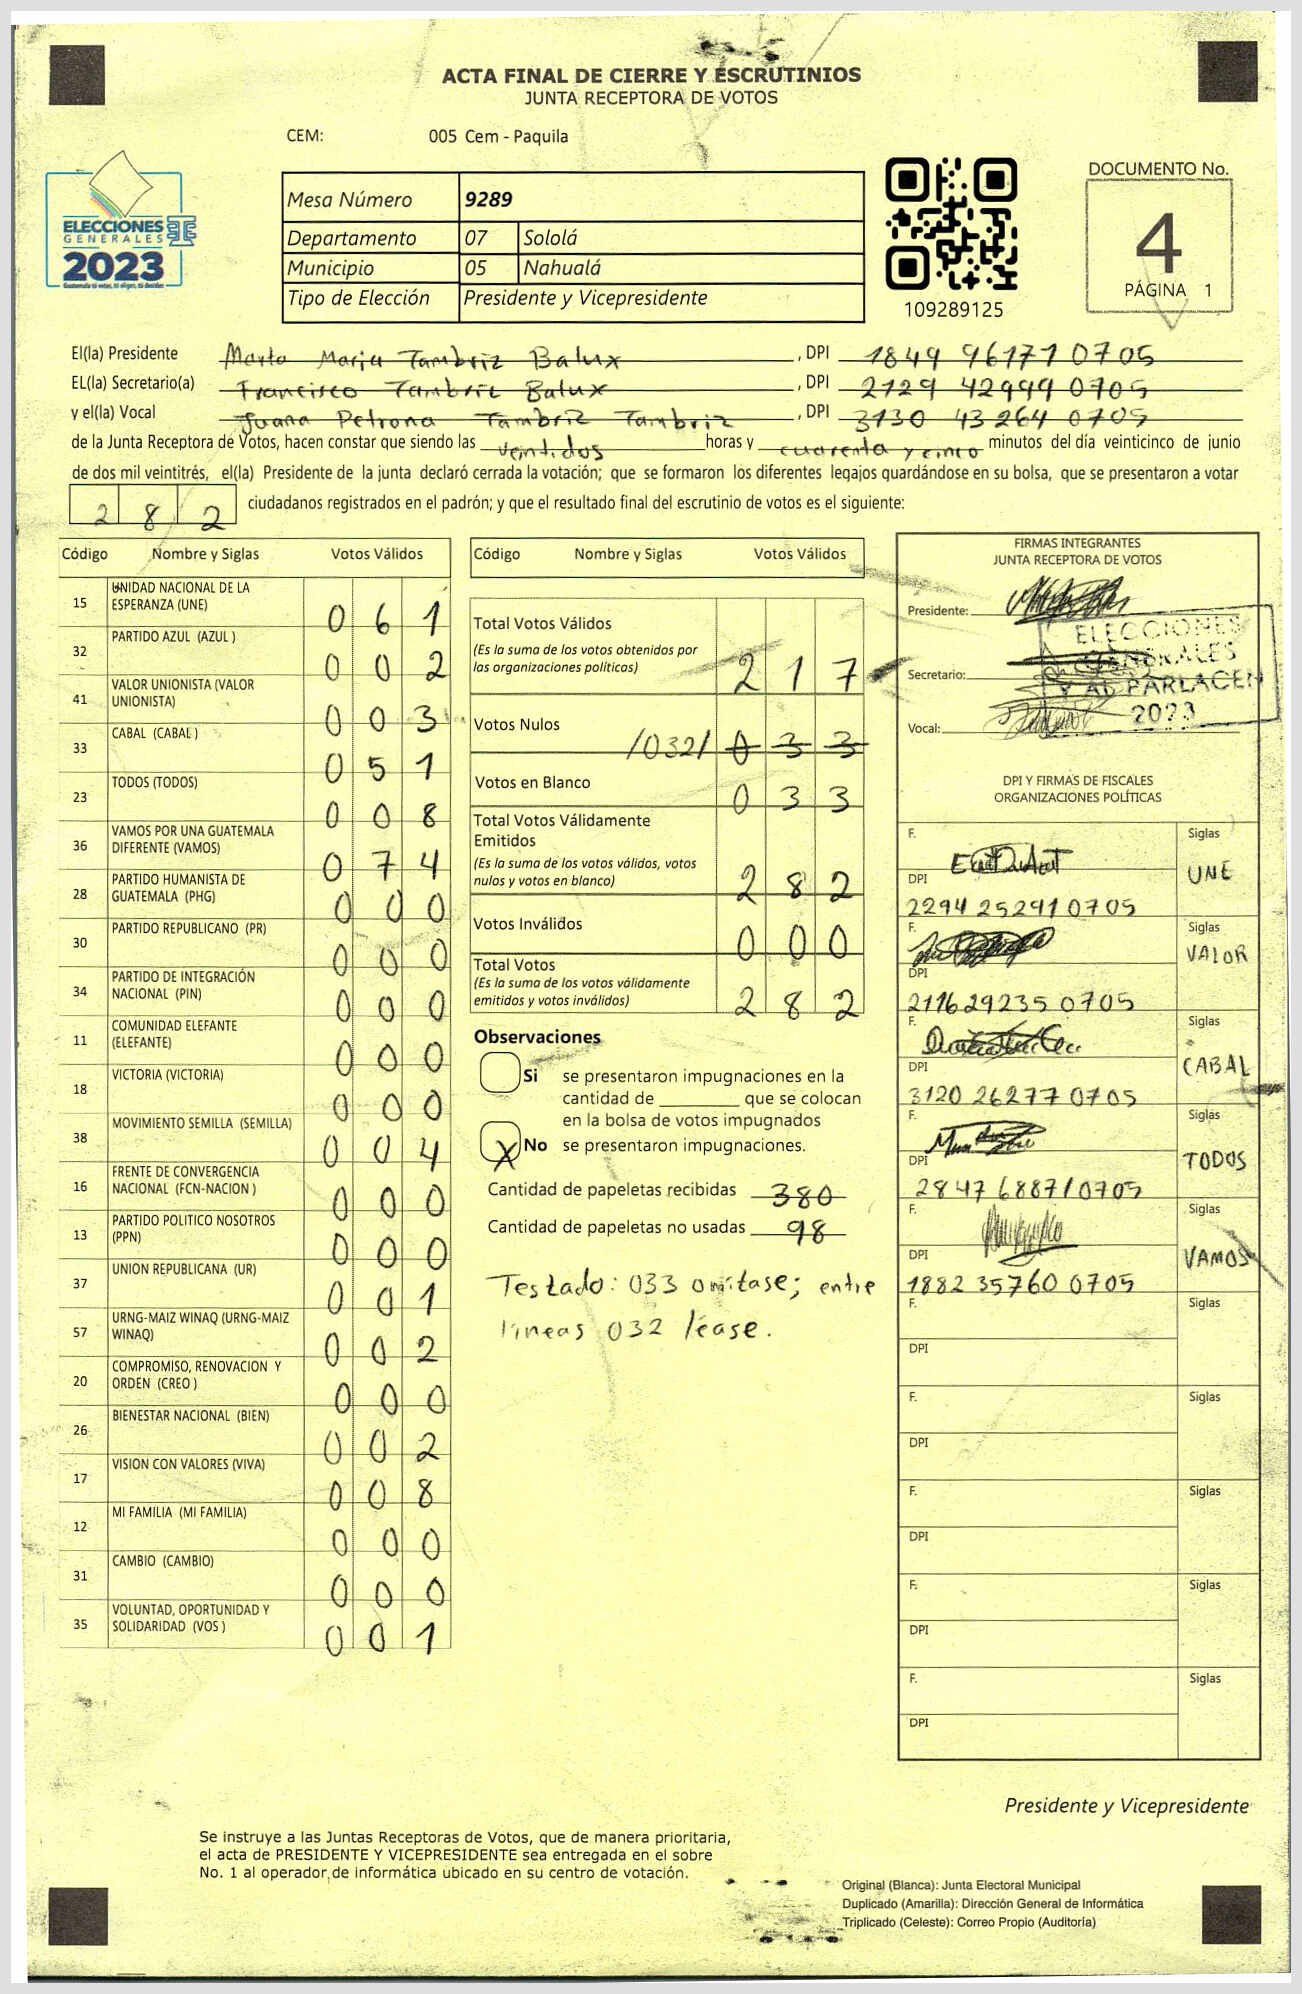 ACTA FINAL DE CIERRE Y ESCRUTINIOS
JUNTA RECEPTORA DE VOTOS
CEM: 005 Cem - Paquila
ELECCIONES
GENERALES
2023
Guatemala tú votas, tú eliges, tú decides
Mesa Número 9289
Departamento 07 Sololá
Municipio 05 Nahualá
Tipo de Elección Presidente y Vicepresidente
109289125
DOCUMENTO No.
4
PÁGINA 1
El(la) Presidente Marta Maria Tambriz Balux , DPI 1849 96171 0705
EL(la) Secretario(a) Francisco Tambriz Balux , DPI 2129 42999 0705
y el(la) Vocal Juana Petrona Tambriz Tambriz , DPI 3130 43264 0705
de la Junta Receptora de Votos, hacen constar que siendo las ventidos horas y cuarenta y cinco minutos del día veinticinco de junio
de dos mil veintitrés, el(la) Presidente de la junta declaró cerrada la votación; que se formaron los diferentes legajos guardándose en su bolsa, que se presentaron a votar
2 8 2 ciudadanos registrados en el padrón; y que el resultado final del escrutinio de votos es el siguiente:
Código Nombre y Siglas Votos Válidos
15 UNIDAD NACIONAL DE LA ESPERANZA (UNE) 0 6 1
32 PARTIDO AZUL (AZUL ) 0 0 2
41 VALOR UNIONISTA (VALOR UNIONISTA) 0 0 3
33 CABAL (CABAL ) 0 5 1
23 TODOS (TODOS) 0 0 8
36 VAMOS POR UNA GUATEMALA DIFERENTE (VAMOS) 0 7 4
28 PARTIDO HUMANISTA DE GUATEMALA (PHG) 0 0 0
30 PARTIDO REPUBLICANO (PR) 0 0 0
34 PARTIDO DE INTEGRACIÓN NACIONAL (PIN) 0 0 0
11 COMUNIDAD ELEFANTE (ELEFANTE) 0 0 0
18 VICTORIA (VICTORIA) 0 0 0
38 MOVIMIENTO SEMILLA (SEMILLA) 0 0 4
16 FRENTE DE CONVERGENCIA NACIONAL (FCN-NACION ) 0 0 0
13 PARTIDO POLITICO NOSOTROS (PPN) 0 0 0
37 UNION REPUBLICANA (UR) 0 0 1
57 URNG-MAIZ WINAQ (URNG-MAIZ WINAQ) 0 0 2
20 COMPROMISO, RENOVACION Y ORDEN (CREO ) 0 0 0
26 BIENESTAR NACIONAL (BIEN) 0 0 2
17 VISION CON VALORES (VIVA) 0 0 8
12 MI FAMILIA (MI FAMILIA) 0 0 0
31 CAMBIO (CAMBIO) 0 0 0
35 VOLUNTAD, OPORTUNIDAD Y SOLIDARIDAD (VOS ) 0 0 1
Código Nombre y Siglas Votos Válidos
Total Votos Válidos
(Es la suma de los votos obtenidos por
las organizaciones políticas) 2 1 7
Votos Nulos /032/ 0 3 3
Votos en Blanco 0 3 3
Total Votos Válidamente
Emitidos
(Es la suma de los votos válidos, votos
nulos y votos en blanco) 2 8 2
Votos Inválidos 0 0 0
Total Votos
(Es la suma de los votos válidamente
emitidos y votos inválidos) 2 8 2
Observaciones
Si se presentaron impugnaciones en la
cantidad de ________ que se colocan
en la bolsa de votos impugnados
X No se presentaron impugnaciones.
Cantidad de papeletas recibidas 380
Cantidad de papeletas no usadas 98
Testado: 033 omitase; entre
lineas 032 léase.
FIRMAS INTEGRANTES
JUNTA RECEPTORA DE VOTOS
Presidente:
Secretario:
Vocal:
ELECCIONES
GENERALES
Y AL PARLACEN
2023
DPI Y FIRMAS DE FISCALES
ORGANIZACIONES POLÍTICAS
F. Siglas
DPI UNE
2294 25291 0705
F. Siglas
DPI VALOR
2116 29235 0705
F. Siglas
DPI CABAL
3120 26277 0705
F. Siglas
DPI TODOS
2847 68871 0705
F. Siglas
DPI VAMOS
1882 35760 0705
F. Siglas
DPI
F. Siglas
DPI
F. Siglas
DPI
F. Siglas
DPI
F. Siglas
DPI
Presidente y Vicepresidente
Se instruye a las Juntas Receptoras de Votos, que de manera prioritaria,
el acta de PRESIDENTE Y VICEPRESIDENTE sea entregada en el sobre
No. 1 al operador de informática ubicado en su centro de votación.
Original (Blanca): Junta Electoral Municipal
Duplicado (Amarilla): Dirección General de Informática
Triplicado (Celeste): Correo Propio (Auditoría)